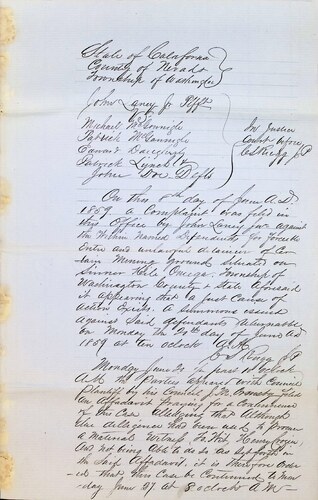 State of California
County of Nevada
Township of Washington
John Laney Jr Plff
vs
Michael McGonnigle
Patrick McGonnigle
Edward
Patrick Lynch &
John Doe Defts
In Justice
Court before
On this 8th day of June A.D.
1859 a Complaint was filed in
this Office by John Laney Jr against
the within Named Defendants for Forcible
Entry and unlawful detainer of cer
tain Mining Ground Situated on
Omega Township of
Washington County & State Aforesaid
it appearing that a Just Cause of
Action Exists. A Summons issued
Against Said defendants returnable
on Monday the 20th day of June AD
1859 at ten oclock A.M.
Monday June 20 ten oclock
A.M. the Parties appeared with Council
Plaintiff by his Council
an Affadavit for a Continuance
of the Case Alledging that Although
due diligence had been used to procure
a Material Witness, to Wit Henry
And not being Able to do so As Set forth in
the Said Affidavit, it is therefore Order
ed that this Case be Continued to Mon
day June 27 at oclock A M